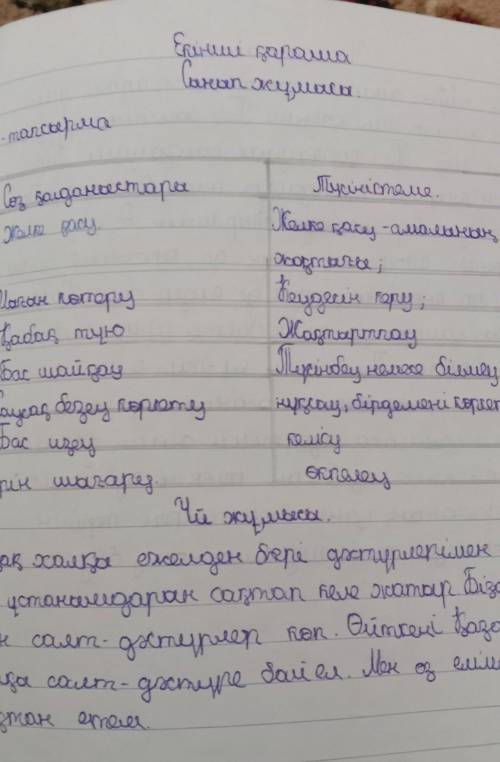 Екінші қараша
Сынып жұмысы.
-тапсырма
Сөз қыданыстары Түсініктеме.
Желке қасу. Желке қасу - амалының
жоқтығы;
көтеру Кеудесін керу;
Қабақ түю Жақтыртпау
Бас шайқау Түсінбеу немесе білмеу
безеу көрсету нұқсау, бірдемені көрсет
Бас изеу келісу
рін шығару. өкпелеу
Үй жұмысы.
ақ халқы ежелден бері дәстүрлерімен
ұстанымдарын сақтап келе жатыр. Біздің
н салт-дәстүрлер көп. Өйткені Қаза
қы салт-дәстүрге бай ел. Мен өз елім
қтан етем.